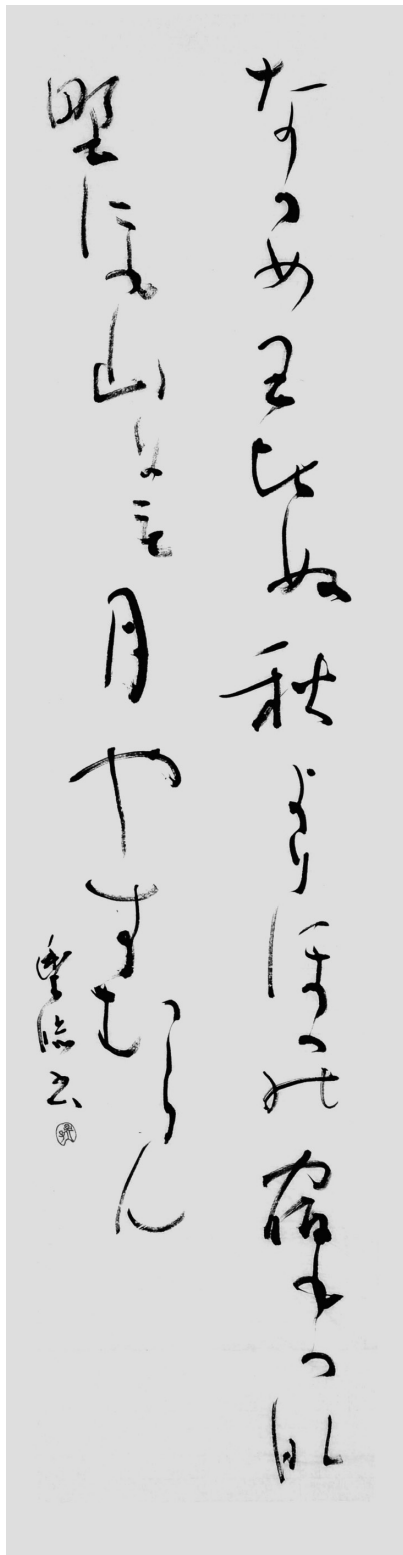 なかめわひぬ秋よりほかの宿もかな
野にも山にも月やすむらん